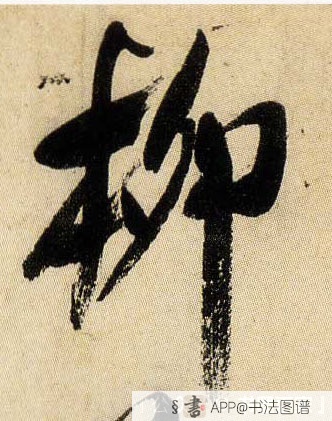 柳
§ 書 APP@书法图谱